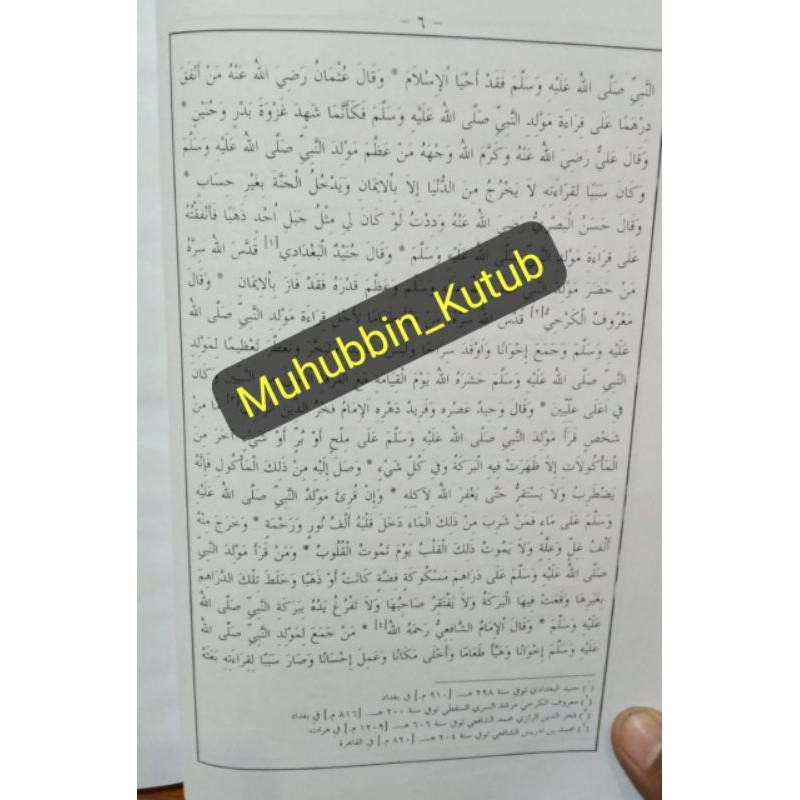 - ٦ -
النَّبِيِّ صَلَّى اللهُ عَلَيْهِ وَسَلَّمَ فَقَدْ أَحْيَا اْلإِسْلاَمَ * وَقَالَ عُثْمَانُ رَضِيَ اللهُ عَنْهُ مَنْ أَنْفَقَ
دِرْهَمًا عَلَى قِرَاءَةِ مَوْلِدِ النَّبِيِّ صَلَّى اللهُ عَلَيْهِ وَسَلَّمَ فَكَأَنَّمَا شَهِدَ غَزْوَةَ بَدْرٍ وَحُنَيْنٍ *
وَقَالَ عَلِيٌّ رَضِيَ اللهُ عَنْهُ وَكَرَّمَ اللهُ وَجْهَهُ مَنْ عَظَّمَ مَوْلِدَ النَّبِيِّ صَلَّى اللهُ عَلَيْهِ وَسَلَّمَ
وَكَانَ سَبَبًا لِقِرَاءَتِهِ لاَ يَخْرُجُ مِنَ الدُّنْيَا إِلاَّ بِاْلإِيمَانِ وَيَدْخُلُ الْجَنَّةَ بِغَيْرِ حِسَابٍ *
وَقَالَ حَسَنُ الْبَصْرِيُّ رَضِيَ اللهُ عَنْهُ وَدِدْتُ لَوْ كَانَ لِي مِثْلُ جَبَلِ أُحُدٍ ذَهَبًا فَأَنْفَقْتُهُ
عَلَى قِرَاءَةِ مَوْلِدِ صَلَّى اللهُ عَلَيْهِ وَسَلَّمَ * وَقَالَ جُنَيْدُ الْبَغْدَادِي[١] قَدَّسَ اللهُ سِرَّهُ
مَنْ حَضَرَ مَوْلِدَ النَّبِيِّ وَسَلَّمَ وَعَظَّمَ قَدْرَهُ فَقَدْ فَازَ بِاْلإِيمَانِ * وَقَالَ
مَعْرُوفُ الْكَرْخِي[٢] قَدَّسَ اللهُ سِرَّهُ لأَجْلِ قِرَاءَةِ مَوْلِدِ النَّبِيِّ صَلَّى اللهُ
عَلَيْهِ وَسَلَّمَ وَجَمَعَ إِخْوَانًا وَأَوْقَدَ سِرَاجًا وَلَبِسَ وَتَعَطَّرَ تَعْظِيمًا لِمَوْلِدِ
النَّبِيِّ صَلَّى اللهُ عَلَيْهِ وَسَلَّمَ حَشَرَهُ اللهُ يَوْمَ الْقِيَامَةِ مَعَ النَّبِيِّينَ وَكَانَ
فِي أَعْلَى عِلِّيِّينَ * وَقَالَ وَحِيدُ عَصْرِهِ وَفَرِيدُ دَهْرِهِ اْلإِمَامُ فَخْرُ الدِّينِ مَا مِنْ
شَخْصٍ قَرَأَ مَوْلِدَ النَّبِيِّ صَلَّى اللهُ عَلَيْهِ وَسَلَّمَ عَلَى مِلْحٍ أَوْ بُرٍّ أَوْ شَيْءٍ آخَرَ مِنَ
الْمَأْكُولاَتِ إِلاَّ ظَهَرَتْ فِيهِ الْبَرَكَةُ وَفِي كُلِّ شَيْءٍ * وَصَلَ إِلَيْهِ مِنْ ذَلِكَ الْمَأْكُولِ فَإِنَّهُ
يَضْطَرِبُ وَلاَ يَسْتَقِرُّ حَتَّى يَغْفِرَ اللهُ ِلآكِلِهِ * وَإِنْ قُرِئَ مَوْلِدُ النَّبِيِّ صَلَّى اللهُ عَلَيْهِ
وَسَلَّمَ عَلَى مَاءٍ فَمَنْ شَرِبَ مِنْ ذَلِكَ الْمَاءِ دَخَلَ قَلْبَهُ أَلْفُ نُورٍ وَرَحْمَةٍ * وَخَرَجَ مِنْهُ
أَلْفُ غِلٍّ وَعِلَّةٍ وَلاَ يَمُوتُ ذَلِكَ الْقَلْبُ يَوْمَ تَمُوتُ الْقُلُوبُ * وَمَنْ قَرَأَ مَوْلِدَ النَّبِيِّ
صَلَّى اللهُ عَلَيْهِ وَسَلَّمَ عَلَى دَرَاهِمَ مَسْكُوكَةٍ فِضَّةً كَانَتْ أَوْ ذَهَبًا وَخَلَطَ تِلْكَ الدَّرَاهِمَ
بِغَيْرِهَا وَقَعَتْ فِيهَا الْبَرَكَةُ وَلاَ يَفْتَقِرُ صَاحِبُهَا وَلاَ تَفْرُغُ يَدُهُ بِبَرَكَةِ النَّبِيِّ صَلَّى اللهُ
عَلَيْهِ وَسَلَّمَ * وَقَالَ اْلإِمَامُ الشَّافِعِيُّ رَحِمَهُ اللهُ[٤] * مَنْ جَمَعَ لِمَوْلِدِ النَّبِيِّ صَلَّى اللهُ
عَلَيْهِ وَسَلَّمَ إِخْوَانًا وَهَيَّأَ طَعَامًا وَأَخْلَى مَكَانًا وَعَمِلَ إِحْسَانًا وَصَارَ سَبَبًا لِقِرَاءَتِهِ بَعَثَهُ
(١) جنيد البغدادي توفي سنة ٢٩٨ هـ. [٩١٠ م.] في بغداد
(٢) معروف الكرخي مرشد السري السقطي توفي سنة ٢٠٠ هـ. [٨١٦ م.] في بغداد
(٣) فخر الدين الرازي محمد الشافعي توفي سنة ٦٠٦ هـ. [١٢٠٩ م.] في هرات
(٤) محمد بن ادريس الشافعي توفي سنة ٢٠٤ هـ. [٨٢٠ م.] في القاهرة
Muhubbin_Kutub